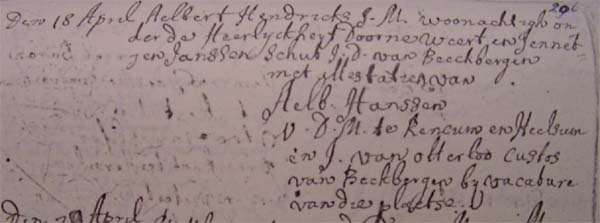 296
Den 18 April Aelbert Hendricks J. M. woonachtigh on
der de Heerlyckheit Doorne Weert, en Jennet-
jen Janssen Schut J. D. van Beeckbergen
met attestatien van
Aelb. Hanssen
V. D. M. te Rencum en Heelsum
en J. van Otterloo Custos
van Beckbergen by vacature
van die plaetse.
Den 29 April